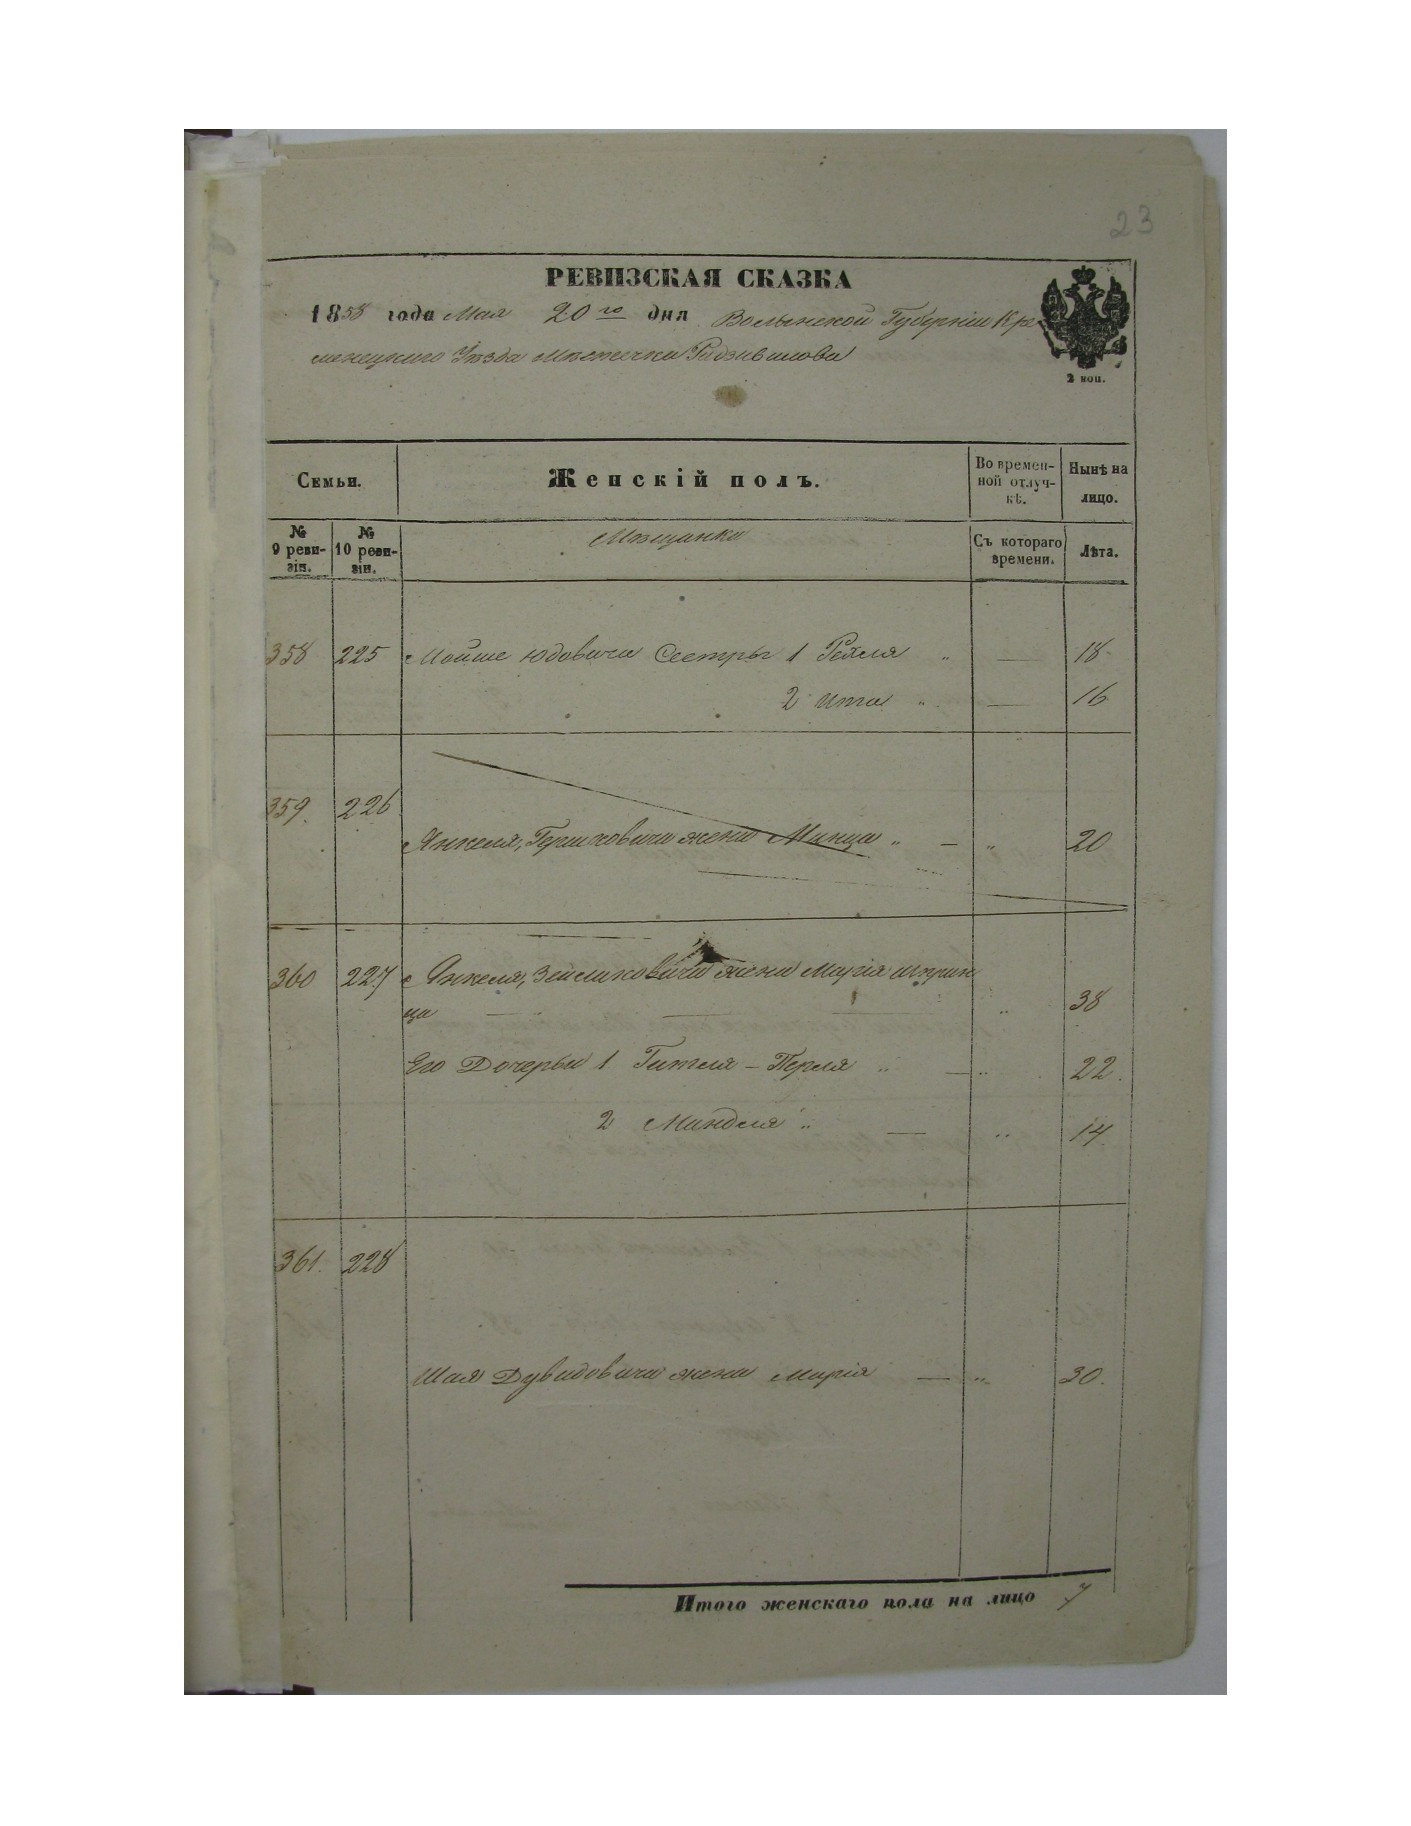 23
РЕВИЗСКАЯ СКАЗКА
1858 года Мая 20го дня Волынской Губерніи Кре
менецкого Уезда местечка Радзивилова
2 коп.
Семьи.
Женскій полъ.
Во времен-
ной отлуч-
кѣ.
Нынѣ на
лицо.
№
9 реви-
зіи.
№
10 реви-
зіи.
Мещанка
Съ котораго
времени.
Лѣта.
358 225 Мойше Юдовича Сестры 1 Рейля " — 18
2 Ита " — 16
359. 226
Янкеля, Гершковича жена Минца " — " 20
360 227 Янкеля, Зейликовича жена Марія шприн
ца — — — " 38
Его Дочеры 1 Гитля - Перля " — " 22.
2 Миндля " — " 14.
361. 228
Шая Дувидовича жена Марія — " 30.
Итого женскаго пола на лицо 7